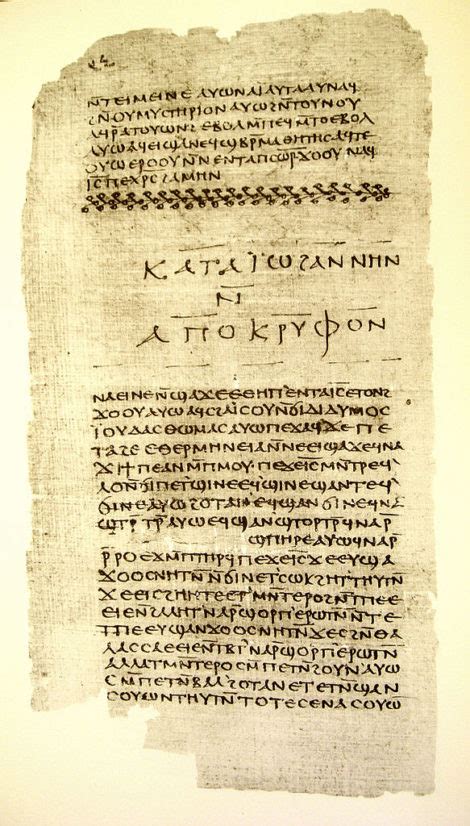 ⲛⲧⲉⲓⲙⲉⲓⲛⲉ ⲁⲩⲱ ⲛⲁⲓ ⲁⲩⲧⲁⲁⲩ ⲛⲁϥ
ϩⲛⲟⲩⲙⲩⲥⲧⲏⲣⲓⲟⲛ ⲁⲩⲱ ϩⲛⲧⲟⲩⲛⲟⲩ
ⲁϥⲣⲁⲧⲟⲩⲱⲛϩ ⲉⲃⲟⲗ ⲙⲡⲉϥⲙⲧⲟ ⲉⲃⲟⲗ
ⲁⲩⲱ ⲁϥⲉⲓ ϣⲁ ⲛⲉϥϣⲃⲣⲙⲁⲑⲏⲧⲏⲥ ⲁϥⲧⲉ
ⲟⲩⲱ ⲉⲣⲟⲟⲩ ⲛⲛⲉⲛⲧⲁⲡⲥⲱⲣ ϫⲟⲟⲩ ⲛⲁϥ
ⲓ̅ⲥ̅ ⲡⲉⲭ̅ⲣ̅ⲥ̅ ϩⲁⲙⲏⲛ
ⲕⲁⲧⲁ ⲓⲱϩⲁⲛⲛⲏⲛ
ⲛ̅
ⲁⲡⲟⲕⲣⲩⲫⲟⲛ
ⲛⲁⲉⲓ ⲛⲉ ⲛ̅ϣⲁϫⲉ ⲉⲑⲏⲡ ⲉⲛⲧⲁⲓ̅ⲥ̅ ⲉⲧⲟⲛϩ
ϫⲟⲟⲩ ⲁⲩⲱ ⲁϥⲥϩⲁⲓⲥⲟⲩ ⲛ̅ϭⲓ ⲇⲓⲇⲩⲙⲟⲥ
ⲓ̈ⲟⲩⲇⲁⲥ ⲑⲱⲙⲁⲥ ⲁⲩⲱ ⲡⲉϫⲁϥ ϫⲉ ⲡⲉ
ⲧⲁϩⲉ ⲉⲑⲉⲣⲙⲏⲛⲉⲓⲁ ⲛ̅ⲛⲉⲉⲓϣⲁϫⲉ ϥⲛⲁ
ϫⲓ ϯⲡⲉ ⲁⲛ ⲙ̅ⲡⲙⲟⲩ ⲡⲉϫⲉ ⲓ̅ⲥ̅ ⲙⲛ̅ⲧⲣⲉϥ
ⲗⲟ ⲛ̅ϭⲓ ⲡⲉⲧϣⲓⲛⲉ ⲉϥϣⲓⲛⲉ ϣⲁⲛⲧⲉϥ
ϭⲓⲛⲉ ⲁⲩⲱ ϩⲟⲧⲁⲛ ⲉϥϣⲁⲛϭⲓⲛⲉ ϥⲛⲁ
ϣⲧⲣ̅ⲧⲣ̅ ⲁⲩⲱ ⲉϥϣⲁⲛϣⲧⲟⲣⲧⲣ̅ ϥⲛⲁⲣ̅
ϣⲡⲏⲣⲉ ⲁⲩⲱ ϥⲛⲁⲣ̅
ⲣ̅ⲣⲟ ⲉϫⲙ̅ ⲡⲧⲏⲣϥ ⲡⲉϫⲉ ⲓ̅ⲥ̅ ϫⲉ ⲉⲩϣⲁ
ϫⲟⲟⲥ ⲛⲏⲧⲛ̅ ⲛ̅ϭⲓ ⲛⲉⲧⲥⲱⲕ ϩⲏⲧ ⲑⲩⲧⲛ̅
ϫⲉ ⲉⲓⲥϩⲏⲏⲧⲉ ⲉⲧⲙⲛ̅ⲧⲉⲣⲟ ϩⲛ̅ ⲧⲡⲉ ⲉ
ⲉⲓⲉ ⲛ̅ϩⲁⲗⲏⲧ ⲛⲁⲣ̅ϣⲟⲣⲡ ⲉⲣⲱⲧⲛ̅ ⲛ̅ⲧⲉ
ⲧⲡⲉ ⲉⲩϣⲁⲛϫⲟⲟⲥ ⲛⲏⲧⲛ̅ ϫⲉ ⲥϩⲛ̅ ⲑⲁ
ⲗⲁⲥⲥⲁ ⲉⲉⲓⲉ ⲛ̅ⲧⲃⲧ ⲛⲁⲣ̅ϣⲟⲣⲡ ⲉⲣⲱⲧⲛ̅
ⲁⲗⲗⲁ ⲧⲙⲛ̅ⲧⲉⲣⲟ ⲥⲙ̅ⲡⲉⲧⲛ̅ϩⲟⲩⲛ ⲁⲩⲱ
ⲥⲙ̅ⲡⲉⲧⲛ̅ⲃⲁⲗ ϩⲟⲧⲁⲛ ⲉⲧⲉⲧⲛ̅ϣⲁⲛ
ⲥⲟⲩⲱⲛ ⲧⲏⲩⲧⲛ̅ ⲧⲟⲧⲉ ⲥⲉⲛⲁⲥⲟⲩⲱ